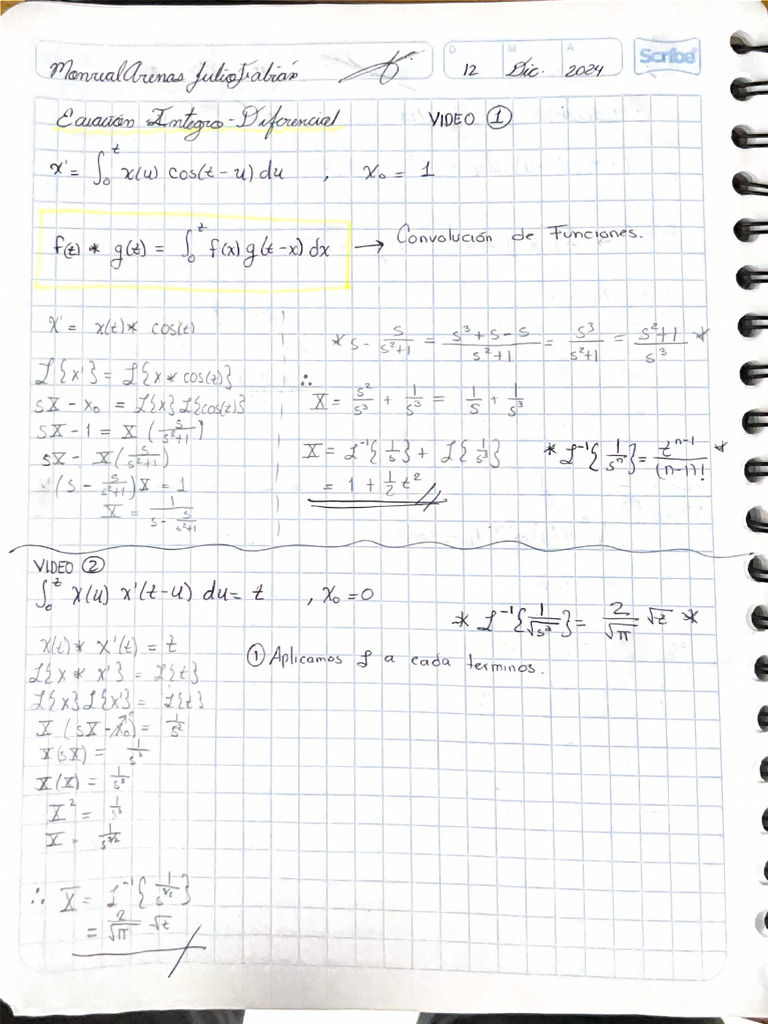 Monreal Arenas Julio Fabián
D 12 M Dic. A 2024
Scribe
Ecuación Integro-Diferencial VIDEO ①
x' = ∫₀ᵗ x(u) cos(t-u) du , x₀ = 1
f(t) * g(t) = ∫₀ᵗ f(x) g(t-x) dx → Convolución de Funciones.
x' = x(t) * cos(t)
ℒ{x'} = ℒ{x * cos(t)}
sX - x₀ = ℒ{x} ℒ{cos(t)}
sX - 1 = X (s/(s²+1))
sX - X(s/(s²+1))
(s - s/(s²+1)) X = 1
X = 1/(s - s/(s²+1))
* s - s/(s²+1) = (s³+s-s)/(s²+1) = s³/(s²+1) = (s²+1)/s³ *
∴
X = s²/s³ + 1/s³ = 1/s + 1/s³
X = ℒ⁻¹{1/s} + ℒ{1/s³} * ℒ⁻¹{1/sⁿ} = tⁿ⁻¹/(n-1)! *
= 1 + ½ t²
VIDEO ②
∫₀ᵗ x(u) x'(t-u) du = t , x₀ = 0
* ℒ⁻¹{1/√s³} = 2/√π √t *
x(t) * x'(t) = t
① Aplicamos ℒ a cada terminos.
ℒ{x * x'} = ℒ{t}
ℒ{x} ℒ{x'} = ℒ{t}
X (sX - x₀) = 1/s²
X(sX) = 1/s²
X(X) = 1/s³
X² = 1/s³
X = 1/s^(3/2)
∴ X = ℒ⁻¹{1/s^(3/2)}
= 2/√π √t